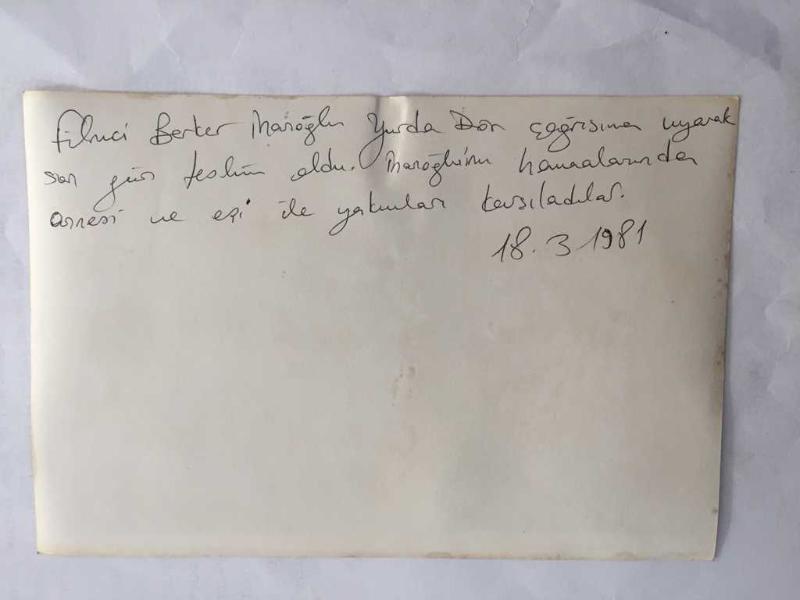 Filmci Berker İnanoğlu Yurda Dön çağrısına uyarak
son gün teslim oldu. İnanoğlu'nu havaalanında
annesi ve eşi ile yakınları karşıladılar.
18.3.1981